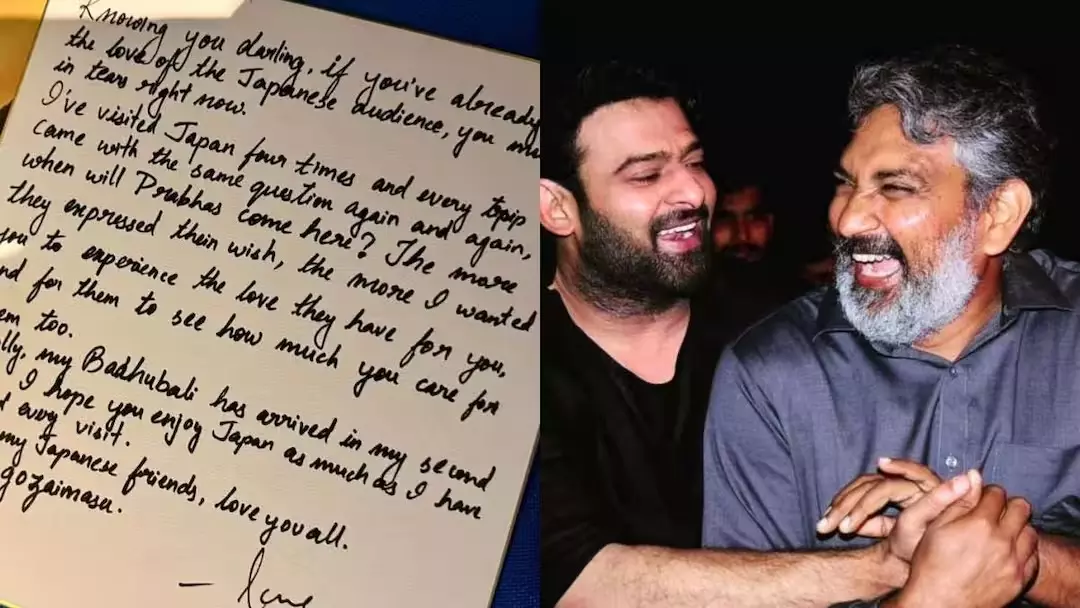 Knowing you darling, if you've already
the love of the Japanese audience, you
in tears right now.
I've visited Japan four times and every trip
came with the same question again and again,
when will Prabhas come here? The more
they expressed their wish, the more I wanted
you to experience the love they have for you,
for them to see how much you care for
too.
my Badhubali has arrived in my second
I hope you enjoy Japan as much as I have
every visit.
my Japanese friends, love you all.
gozaimasu.